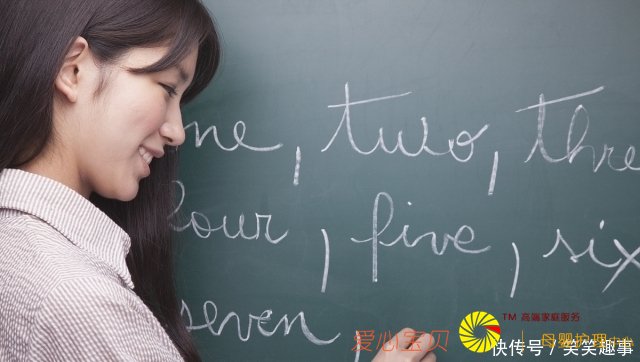 ne, two, thre
four, five, six
seven,
爱心宝贝
TM 高端家庭服务
母婴护理
快传号/笑笑趣事